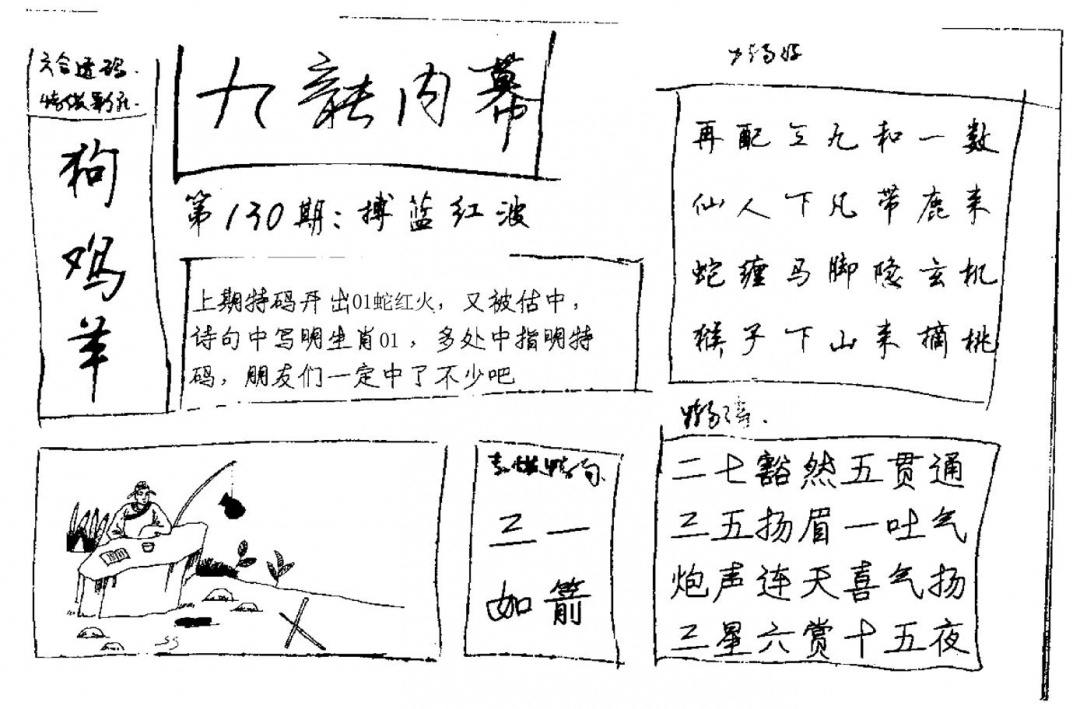 九龍内幕
狗
鸡
羊
第130期：搏蓝红波
上期特码开出01蛇红火，又被估中，
诗句中写明生肖01，多处中指明特
码，朋友们一定中了不少吧
再配三九和一数
仙人下凡带鹿来
蛇缠马脚隐玄机
猴子下山来摘桃
三一
如箭
二七豁然五贯通
三五扬眉一吐气
炮声连天喜气扬
三星六赏十五夜